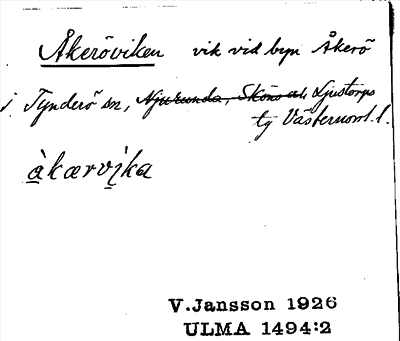 Åkeröviken vik vid byn Åkerö
i Tynderö sn, Njurunda, Sköns och Ljustorps
tg Västernorrl. l.
àkærvika
V.Jansson 1926
ULMA 1494:2